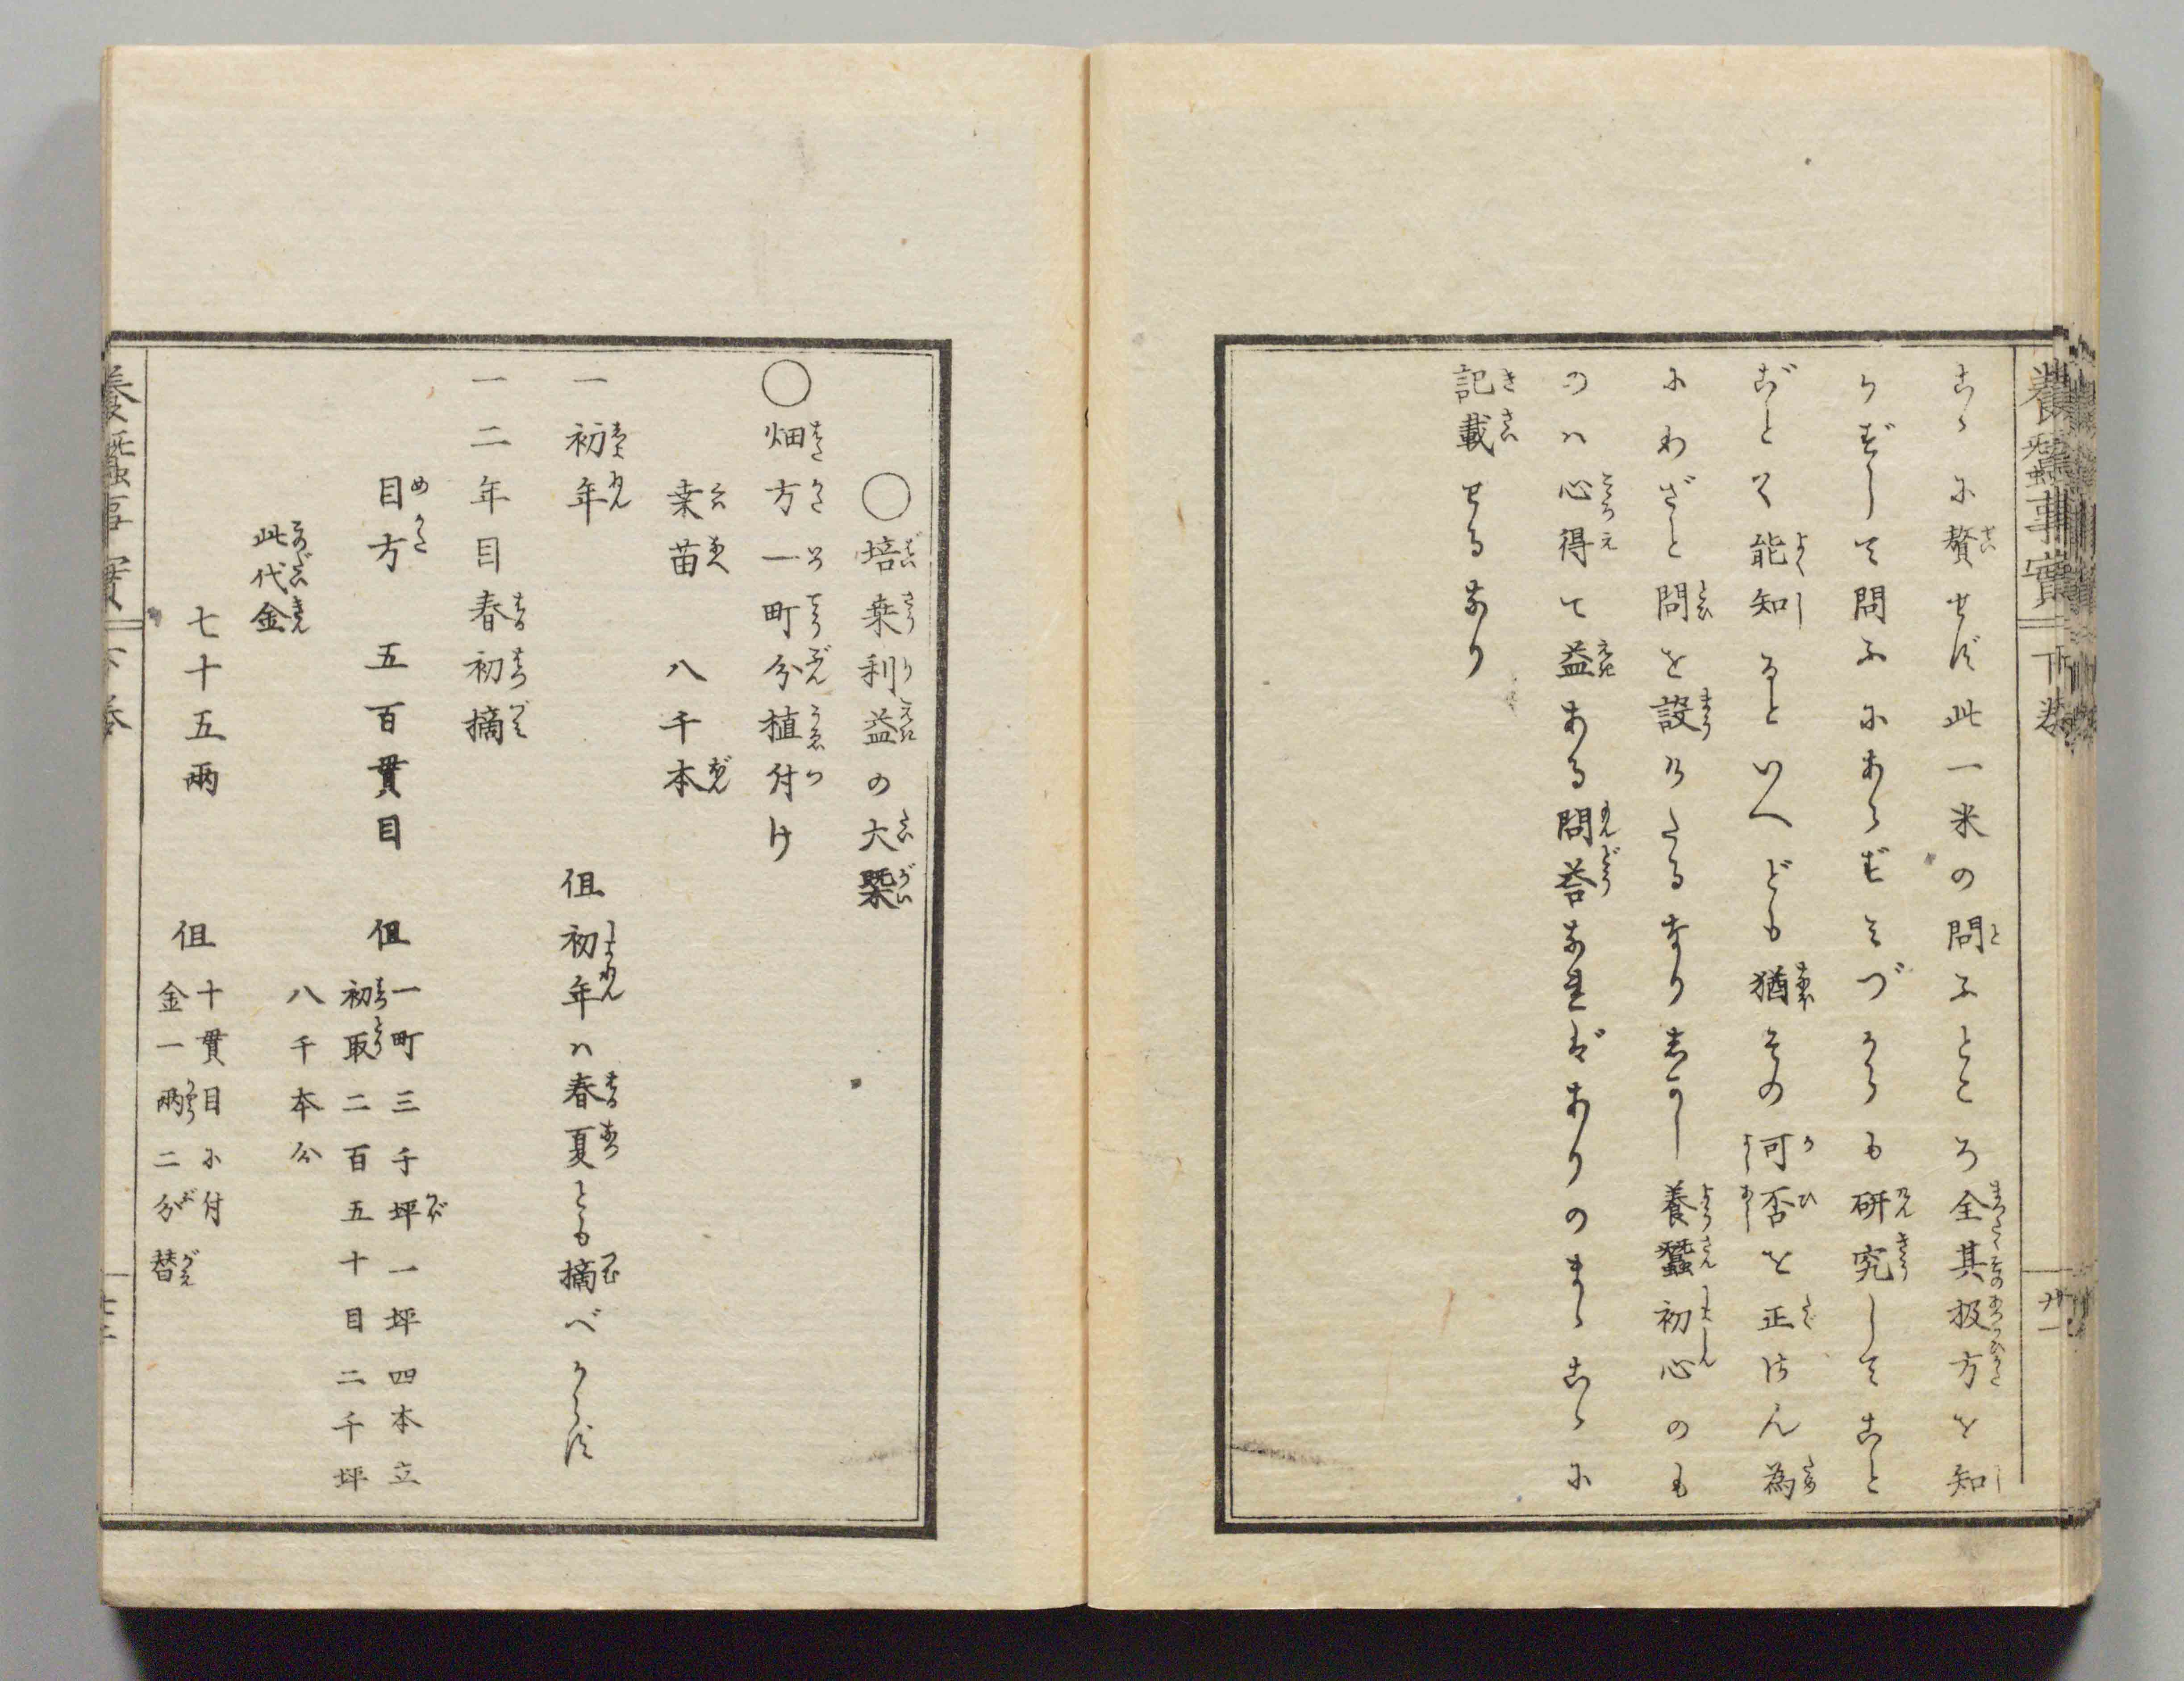 養蠶事實 下卷 廿一
こゝに贅せず此一米の問ふところ全其扱方を知
らずして問ふにあらずみづからも研究してこと
ごとく能知るといへども猶その可否を正さん為
にわざと問を設けたるなりしかし養蠶初心のも
のハ心得て益ある問答なればありのまゝこゝに
記載せるなり
○培桒利益の大槩
○畑方一町分植付け
桒苗 八千本
一初年 但初年ハ春夏とも摘べからず
一二年目春初摘
目方 五百貫目 但一町三千坪一坪四本立
初取二百五十目二千坪
八千本分
此代金
七十五兩 但十貫目に付
金一兩二分替
養蠶事實 下卷